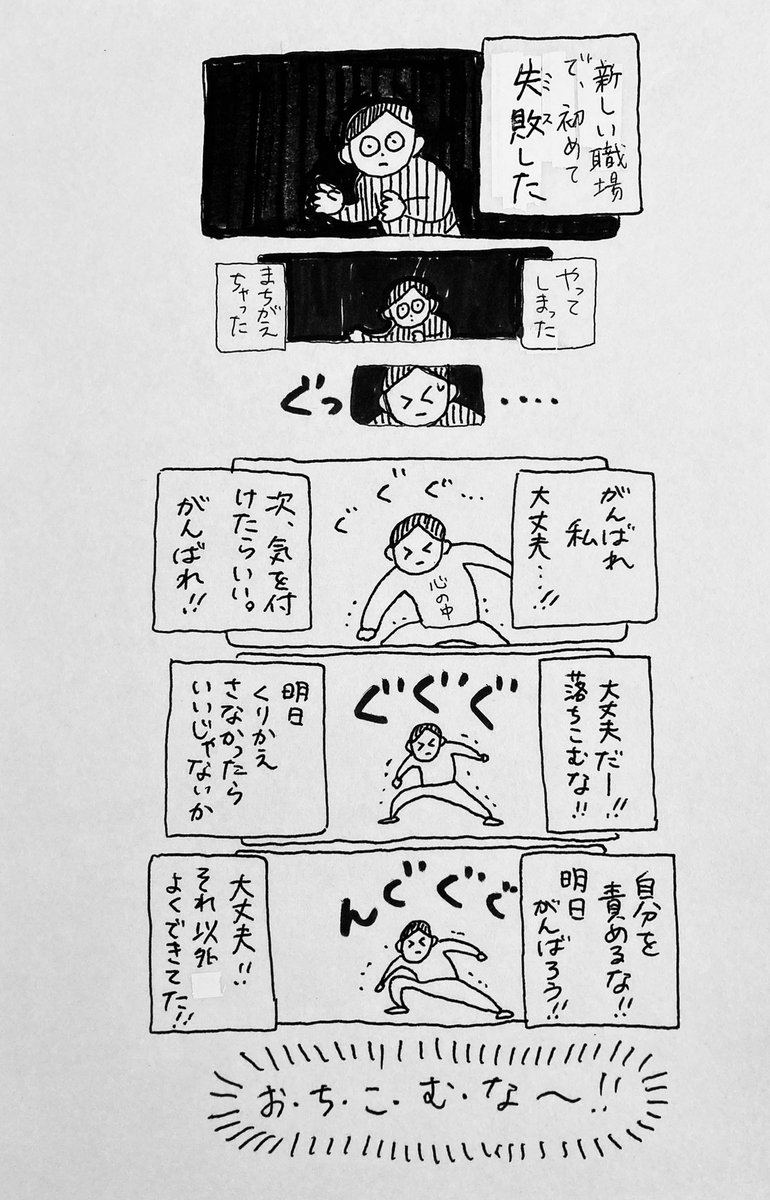 新しい職場
で、初めて
失敗した
ミス
やって
しまった
まちがえ
ちゃった
‥‥
ぐっ
がんばれ
私
大丈夫…!!
ぐぐぐ…
心の中
次、気を付
けたらいい。
がんばれ!!
大丈夫だー!!
落ちこむな!!
ぐぐぐ
明日
くりかえ
さなかったら
いいじゃないか
自分を
責めるな!!
明日
がんばろう!!
んぐぐぐ
大丈夫!!
それ以外
よくできてた!!
お・ち・こ・む・な〜!!